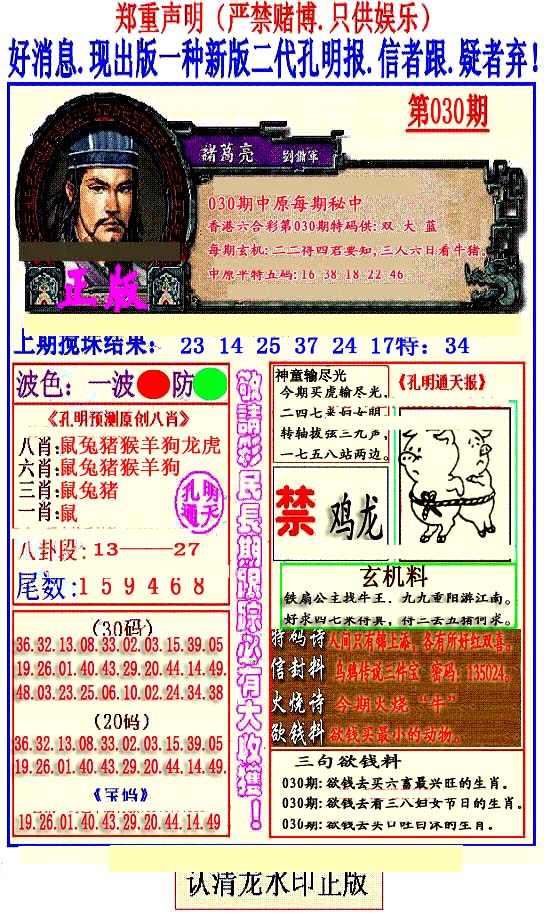 郑重声明（严禁赌博.只供娱乐）
好消息.现出版一种新版二代孔明报.信者跟.疑者弃!
第030期
諸葛亮 劉備軍
030期中原每期秘中
香港六合彩第030期特码供: 双 大 蓝
每期玄机: 二二得四君要知, 三人六日看牛猪。
中原平特五码: 16 38 18 22 46
正版
上期搅珠结果: 23 14 25 37 24 17特: 34
波色: 一波 防
《孔明预测原创八肖》
八肖:鼠兔猪猴羊狗龙虎
六肖:鼠兔猪猴羊狗
三肖:鼠兔猪
一肖:鼠
孔明通天
八卦段: 13——27
尾数: 1 5 9 4 6 8
(30码)
36.32.13.08.33.02.03.15.39.05
19.26.01.40.43.29.20.44.14.49
48.03.23.25.06.10.02.24.34.38
(20码)
36.32.13.08.33.02.03.15.39.05
19.26.01.40.43.29.20.44.14.49
《宝码》
19.26.01.40.43.29.20.44.14.49
敬請彩民長期跟踪必有大收獲!
神童输尽光
今期买虎输尽光,
二四七来妇女明
转轴拔弦三九声,
一七五八站两边。
《孔明通天报》
禁 鸡龙
玄机料
铁扇公主找牛王, 九九重阳游江南。
好求四七来付真, 付二去五猪何求。
特码诗 人间只有锦上添, 各有所好红双喜。
信封料 乌鸦传说三件宝 密码: 135024。
火烧诗 今期火烧“牛”
欲钱料 欲钱买最小的动物。
三句欲钱料
030期: 欲钱去买六富最兴旺的生肖。
030期: 欲钱去看三八妇女节日的生肖。
030期: 欲钱去买口吐白沫的生肖。
认清龙水印正版